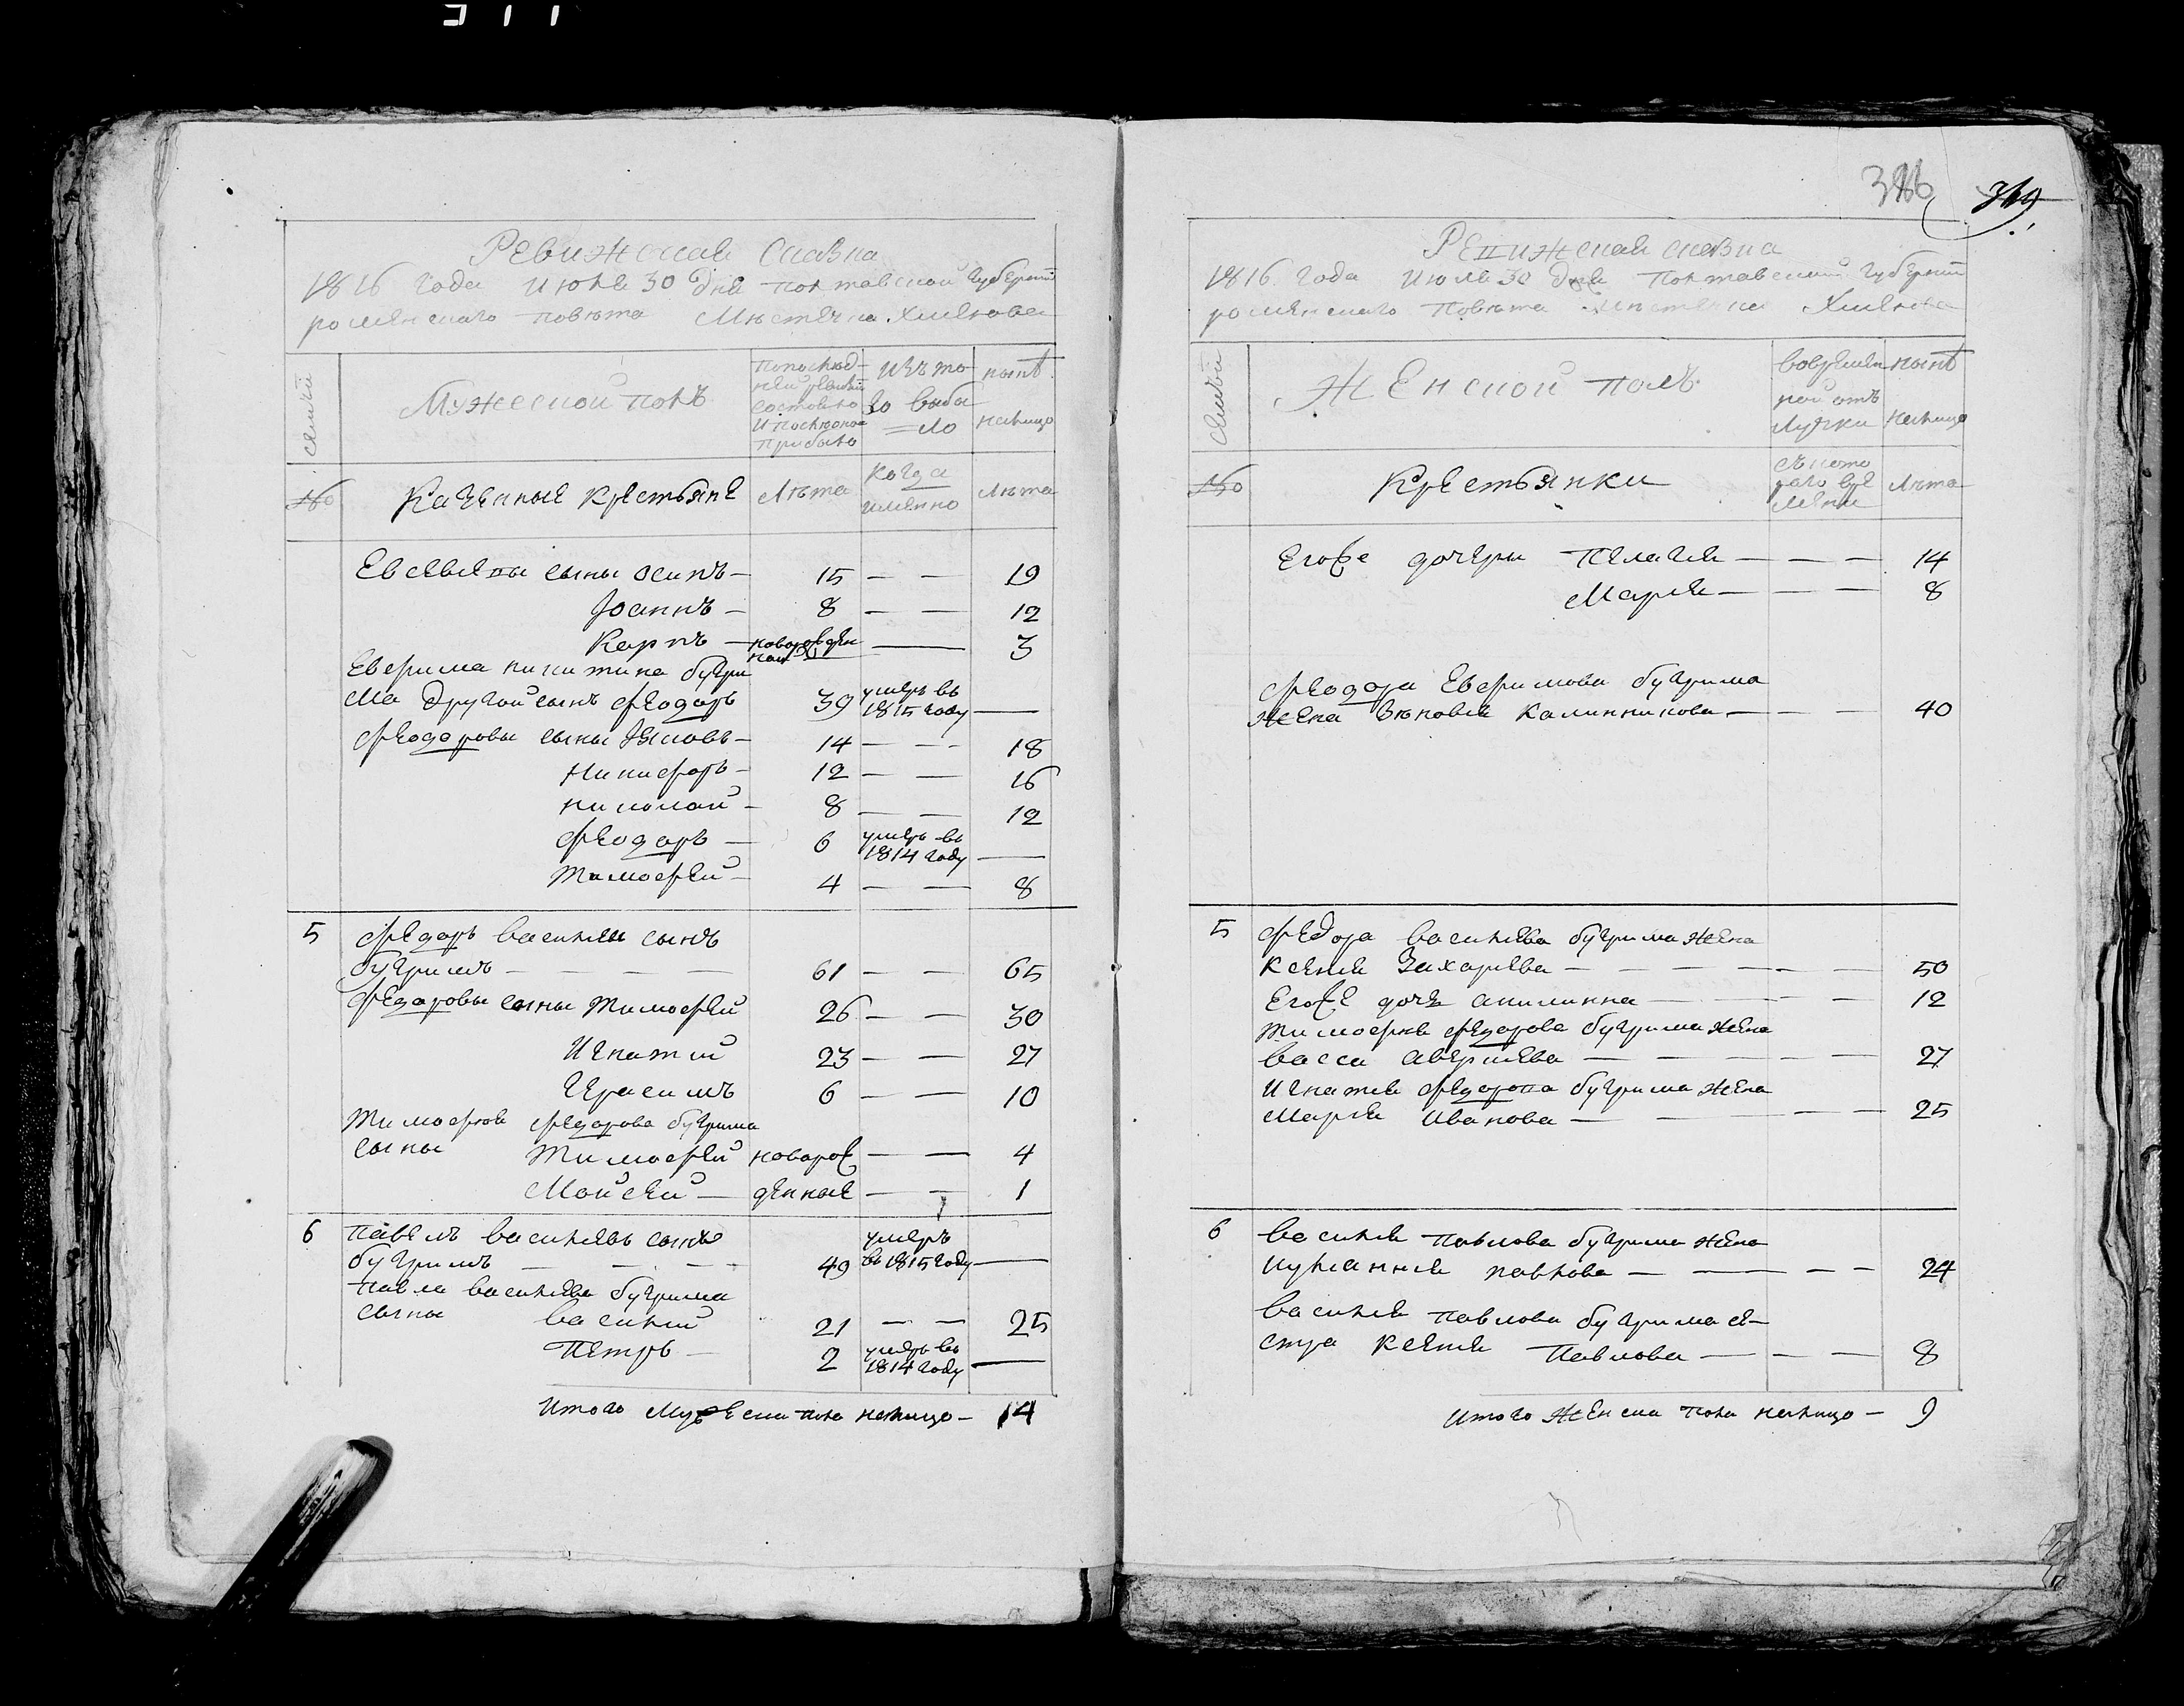 Ревижская Сказка
1816 года июля 30 дня Полтавской губернии
роменского повета Местечка Хмелова
семьи
Мужеской полъ
попослед-
ней ревизии
состояло
и после оной
прибыло
изъ то
го выбы
=ло
ныне
налицо
№
Казенные крестьяне
Лета
когда
именно
Лета
Евсевиевы сыны осипъ — 15 — — 19
Iоаннъ — 8 — — 12
Карпъ — новорожден
ный — 3
Еверима никитина бугри
ма другой сынъ феодоръ 39 умеръ въ
1815 году —
феодоровы сыны Яковъ — 14 — — 18
Никифоръ — 12 — — 16
николай — 8 — — 12
феодоръ — 6 умеръ въ
1814 году —
Тимофей — 4 — — 8
5 федоръ василiевъ сынъ
бугримъ — — — — 61 — — 65
федоровы сыны Тимофей 26 — — 30
Игнатий 23 — — 27
Герасимъ 6 — — 10
Тимофея федорова бугрима
сыны Тимофей новорож — — 4
Мойсей — денные — — 1
6 павелъ василиевъ сынъ
бугримъ — — — — 49 умеръ
въ 1815 году —
павла василиева бугрима
сыны василий 21 — — 25
Петръ — 2 умеръ въ
1814 году —
Итого Мужеска пола налицо — 14
386
319
Ревижская сказка
1816 года июля 30 дня Полтавской губернии
роменского повета местечка Хмелова
семьи
Женской полъ
вовремен
ной отъ
лучки
ныне
налицо
№
Крестьянки
съ кото
раго вре
мени
Лета
Егоже дочери Пелагея — — — 14
Марья — — — 8
феодора Еверимова бугрима
жена Зеновия Калинникова — — — 40
5 федора василиева бугрима жена
Ксения Захариева — — — — — 50
Егоже дочь акилинна — — — 12
Тимофея федорова бугрима жена
васса авериева — — — — — 27
Игнатия федорова бугрима жена
Мария Иванова — — — — 25
6 василия павлова бугрима жена
иулианния павлова — — — — 24
василия павлова бугрима се—
стра Ксения Павлова — — — 8
итого женска пола налицо — 9